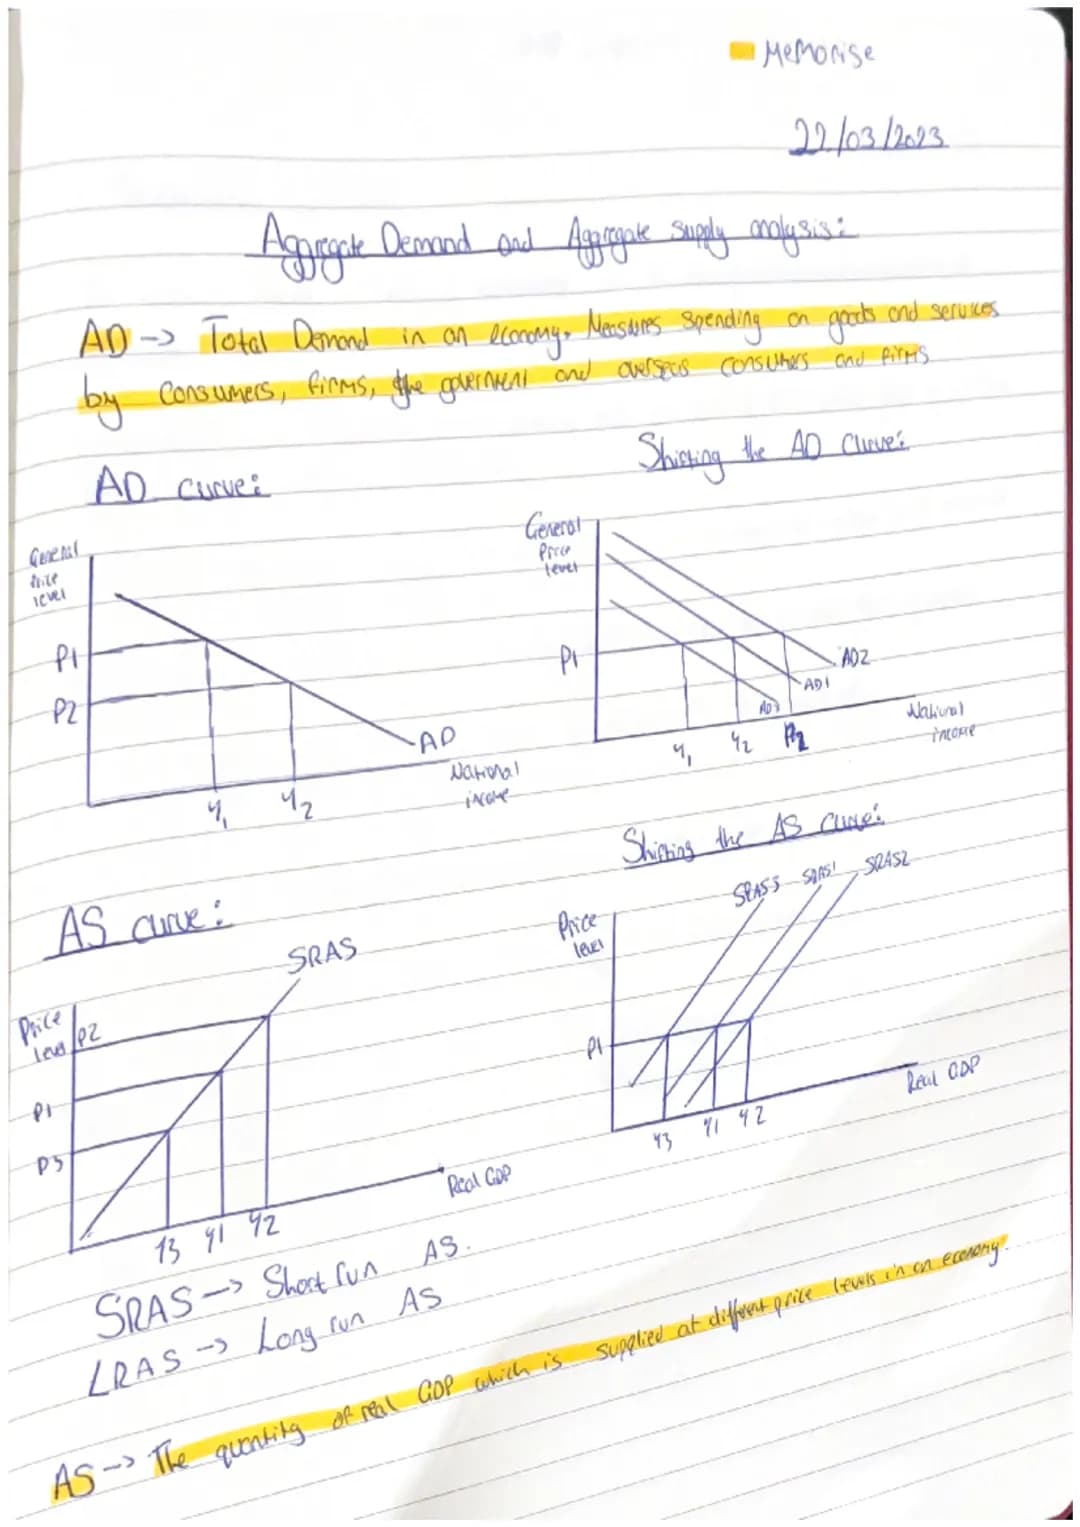 Memorise
22/03/2023
Aggregate Demand and Aggregate supply analysis:
AD -> Total Demand in an economy. Measures spending on goods and services
by consumers, firms, the government and overseas consumers and firms
AD curve:
Shifting the AD curve:
General
Price
level
P1
P2
AD
National
income
Y1
Y2
General
Price
level
P1
AD2
AD1
AD3
National
income
Y1
Y2
AS curve:
Shifting the AS curve:
SRAS
Price
level
P2
P1
P3
Real GDP
Y3 Y1 Y2
SRAS3 SRAS1 SRAS2
Price
level
P1
Real GDP
Y3 Y1 Y2
SRAS -> Short run AS.
LRAS -> Long run AS
AS -> The quantity of real GDP which is supplied at different price levels in an economy.